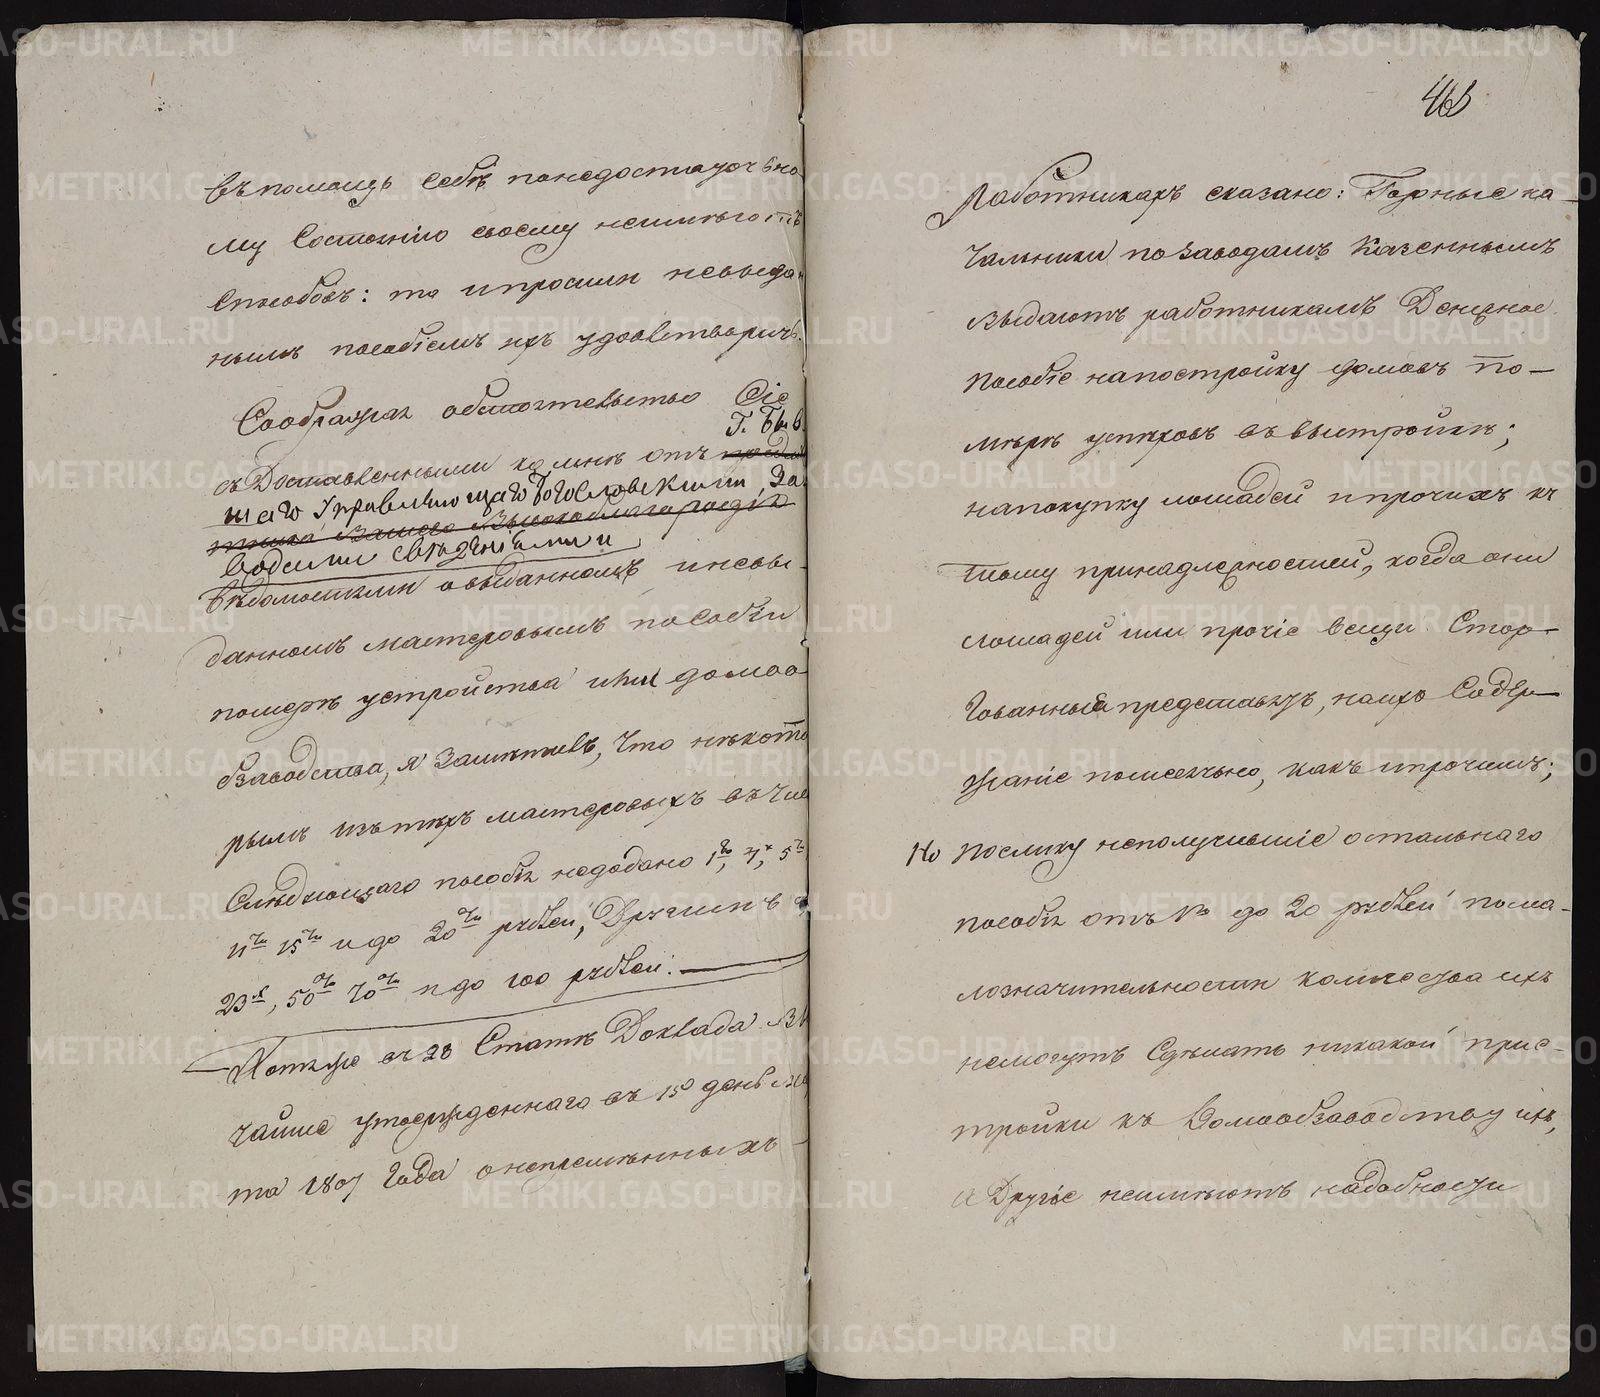 въ помощь себѣ понедостаточно
му Состоянію своему неимѣютъ
Способовъ: то и просили невыдан
нымъ пособіемъ ихъ удовлетворить.
Сообразяя обстоятельство Сіе
Г. Быв
съ Доставленными ко мнѣ отъ
шаго Управляющаго Богословскими За
Вашего Высокоблагородія
водами свѣденіями и
Вѣдомостями о выданномъ и невы-
данномъ мастеровымъ пособіи
померѣ устройства ими домоо
бзаводства, я Замѣтилъ, что нѣкото
рымъ изъ тѣхъ мастеровыхъ въ чис
Слѣдующаго пособія недодано 1го, 4х, 5ти
11ти 15ти и до 20ти рублей, Другимъ
23х, 50ти 70ти и до 100 рублей.
Хотяже въ 28 Статьѣ Доклада Вы
чайше утвержденнаго въ 15й день Ма
та 1807 Года о непремѣнныхъ -
463
Работникахъ сказано: Горные на-
чальники по Заводамъ Казеннымъ
выдаютъ работникамъ Денежное
пособіе на постройку домовъ по-
мѣрѣ успѣховъ въ выстройкѣ;
на покупку лошадей и прочихъ къ
тому принадлежностей, когда они
лошадей или прочіе вещи Стор-
гованныя представятъ, на ихъ Содер-
жаніе помесячно, какъ и прочимъ;
Но поелику неполучившіе остальнаго
пособія отъ 1го до 20 рублей пома-
лозначительности количества ихъ
немогутъ Сдѣлать никакой прис-
тройки къ Домообзаводству ихъ,
а Другіе неимѣютъ надобности
METRIKI.GASO-URAL.RU